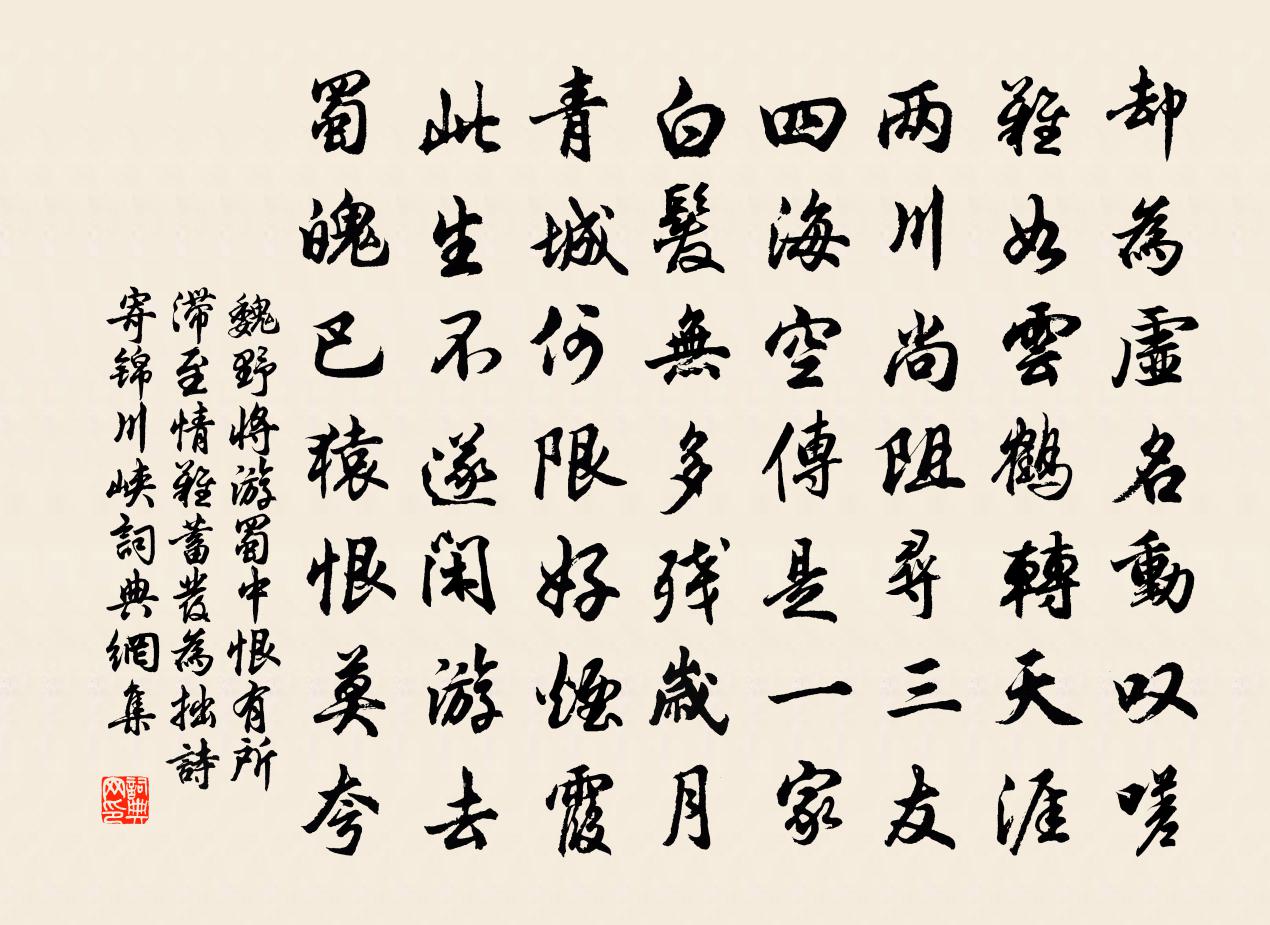 却為虛名動叹嗟
難如雲鶴轉天涯
两川尚阻尋三友
四海空傳是一家
白髮無多残歲月
青城何限好煙霞
此生不遂闲游去
蜀魄巴猿恨莫夸
魏野将游蜀中恨有所
滯至情難蓄發為拙詩
寄锦川峡詞典網集
詞典网印